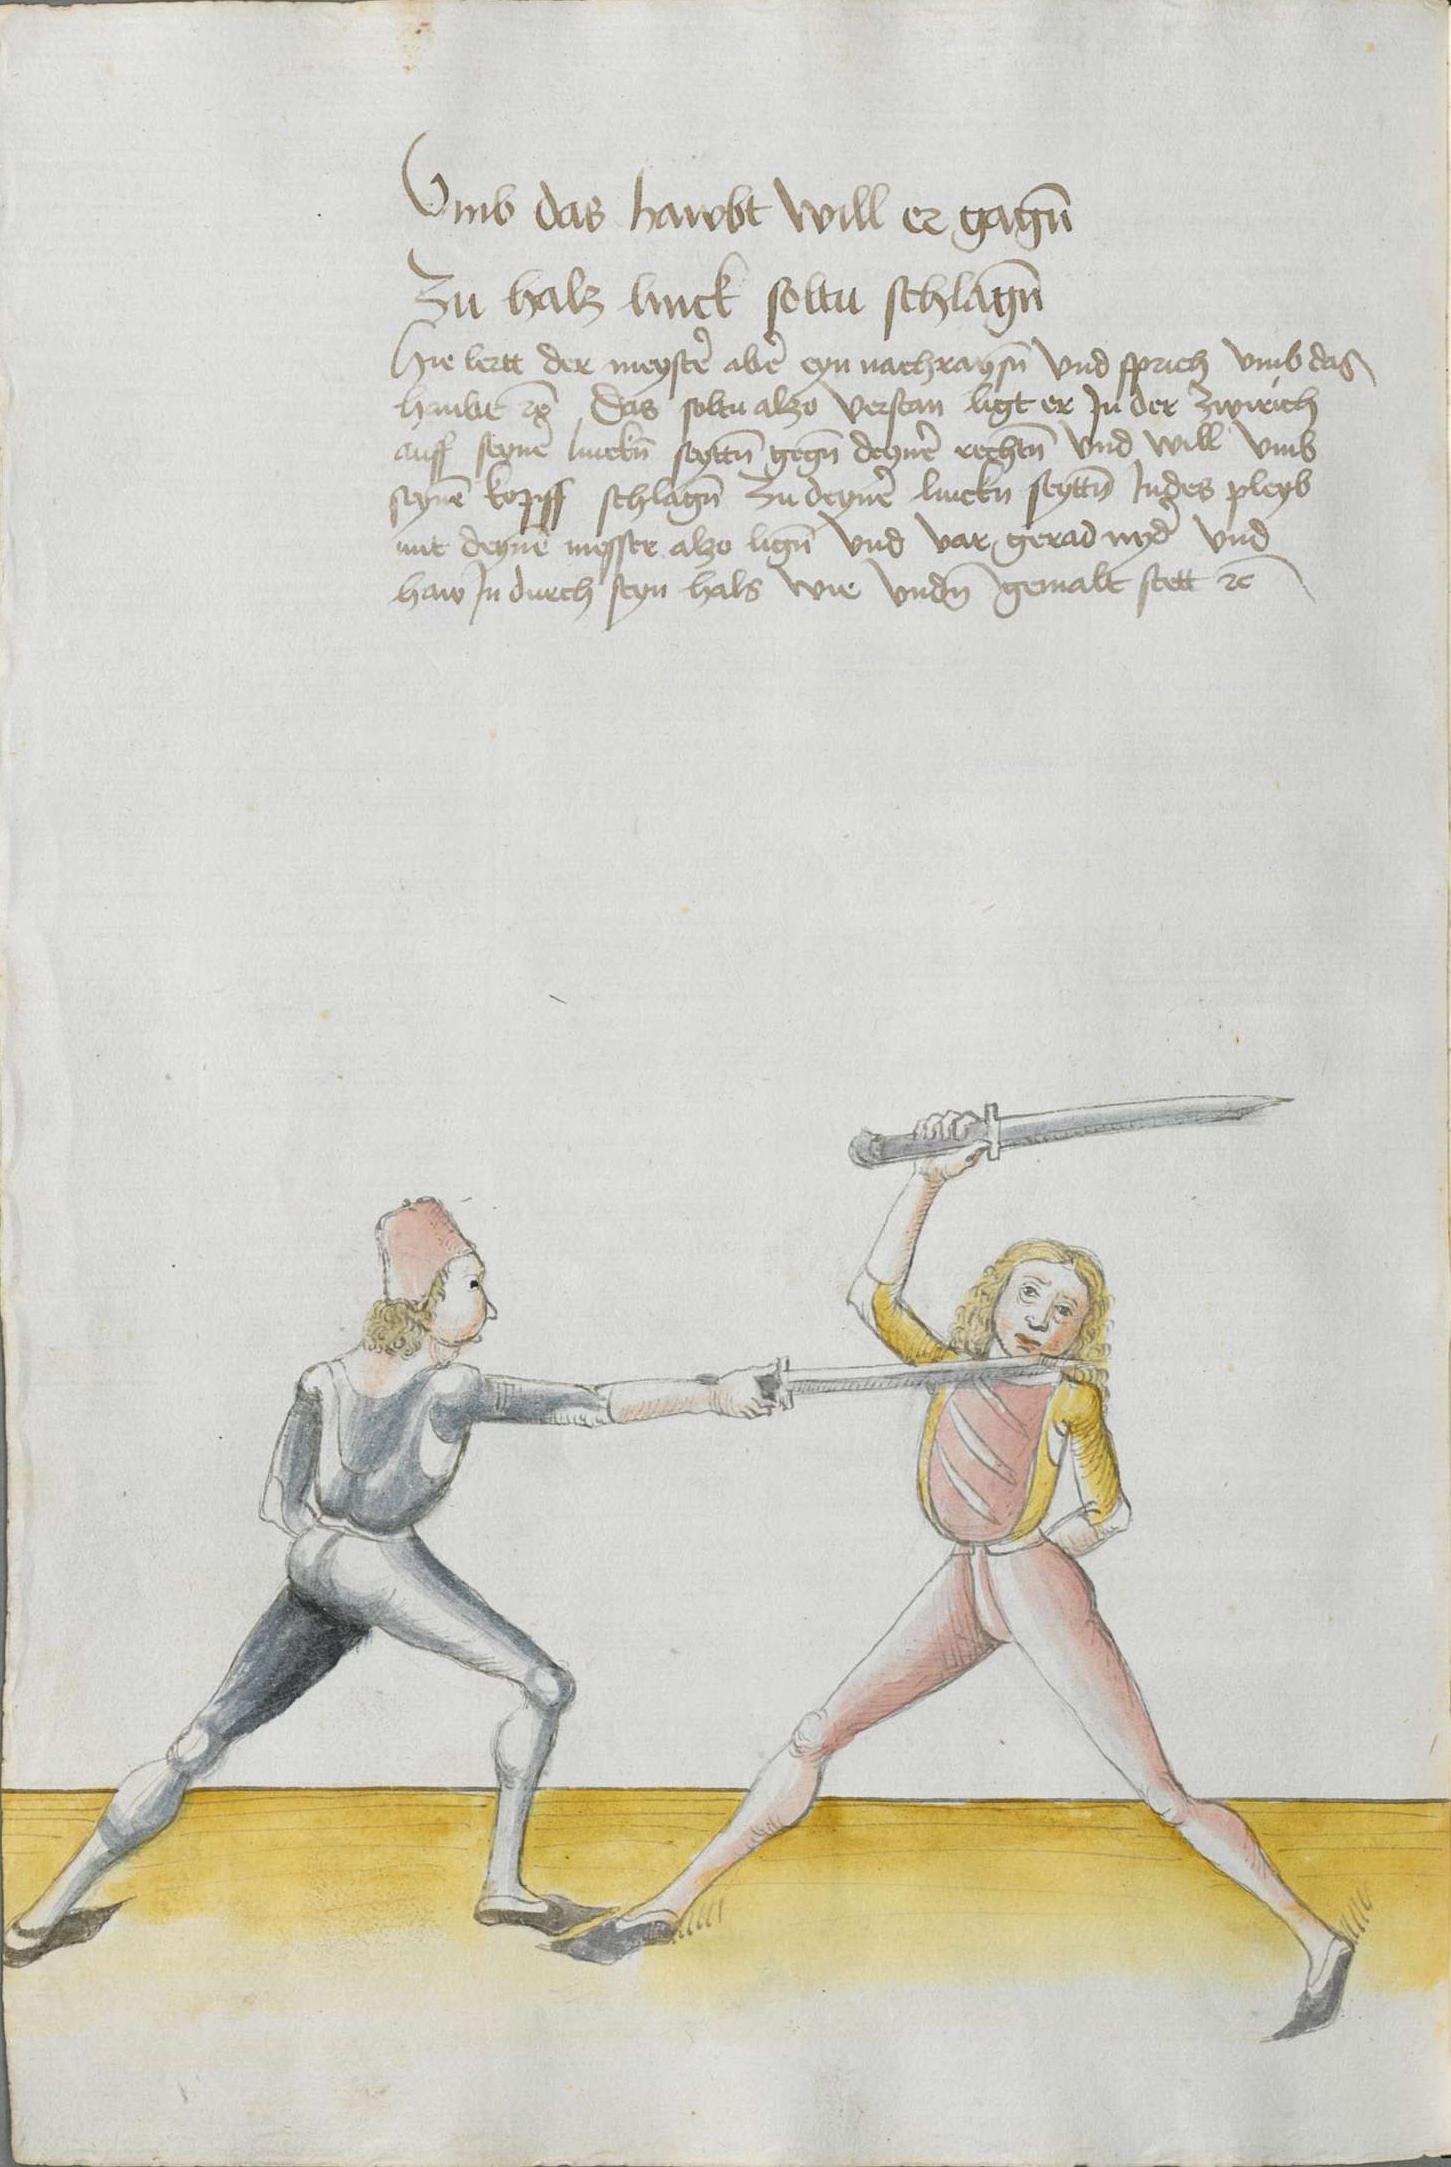 Vmb das hawbt will er gagn̄
Zu halz linck soltu schlagn̄
Hie lertt der meyster̄ aber̄ eyn nachraysn̄ Vnd sprich Vmb das
haubt ꝛc̄ Das soltu alzo Verstan ligt er Jn der Zwirich
auff seyner̄ linckn̄ seyttn̄ gegn̄ deyner̄ rechtn̄ Vnd will Vmb
seynē kopff schlagn̄ Zu deyner̄ linckn seyttn̄ Jndes pleyb
mit deynē messer alzo lign̄ Vnd Var gerad nyder̄ Vnd
haw Jn durch seyn hals wie Vndn̄ gemalt stett ꝛc̄